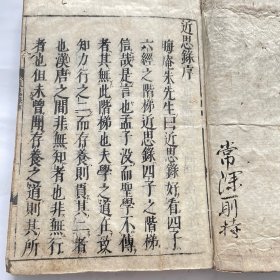 近思錄序
晦庵朱先生曰近思錄好看四子
六經之階梯近思錄四子之階梯
信哉是言也孟子沒而聖學不傳
者其無此階梯也大學之道在致
知力行之二而存養則貫其二者
也漢唐之間非無知者也非無行
者也但未曾聞存養之道則其所
常深